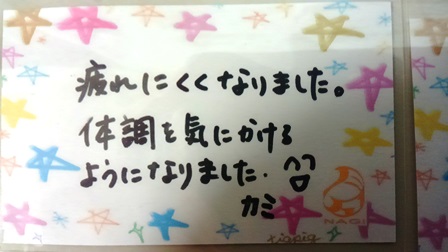 疲れにくくなりました。
体調を気にかける
ようになりました.
カミ
NAOI